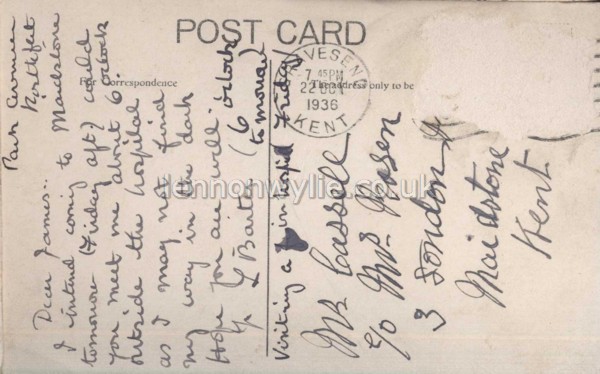 POST CARD
For Correspondence
The address only to be
GRAVESEND
7 45 PM
22 OCT
1936
KENT
Park Avenue
Northfleet
Dear James..
I intend coming to Maidstone
tomorrow (Friday aft) could
you meet me about 6 oclock
outside the hospital
as I may not find
my way in the dark
Hope you are well
L Baites (6 oclock)
to morrow
Visiting a in hospil Friday
Mr Cassell
c/o Mrs
3 London Rd
Maidstone
Kent
lennonwylie.co.uk